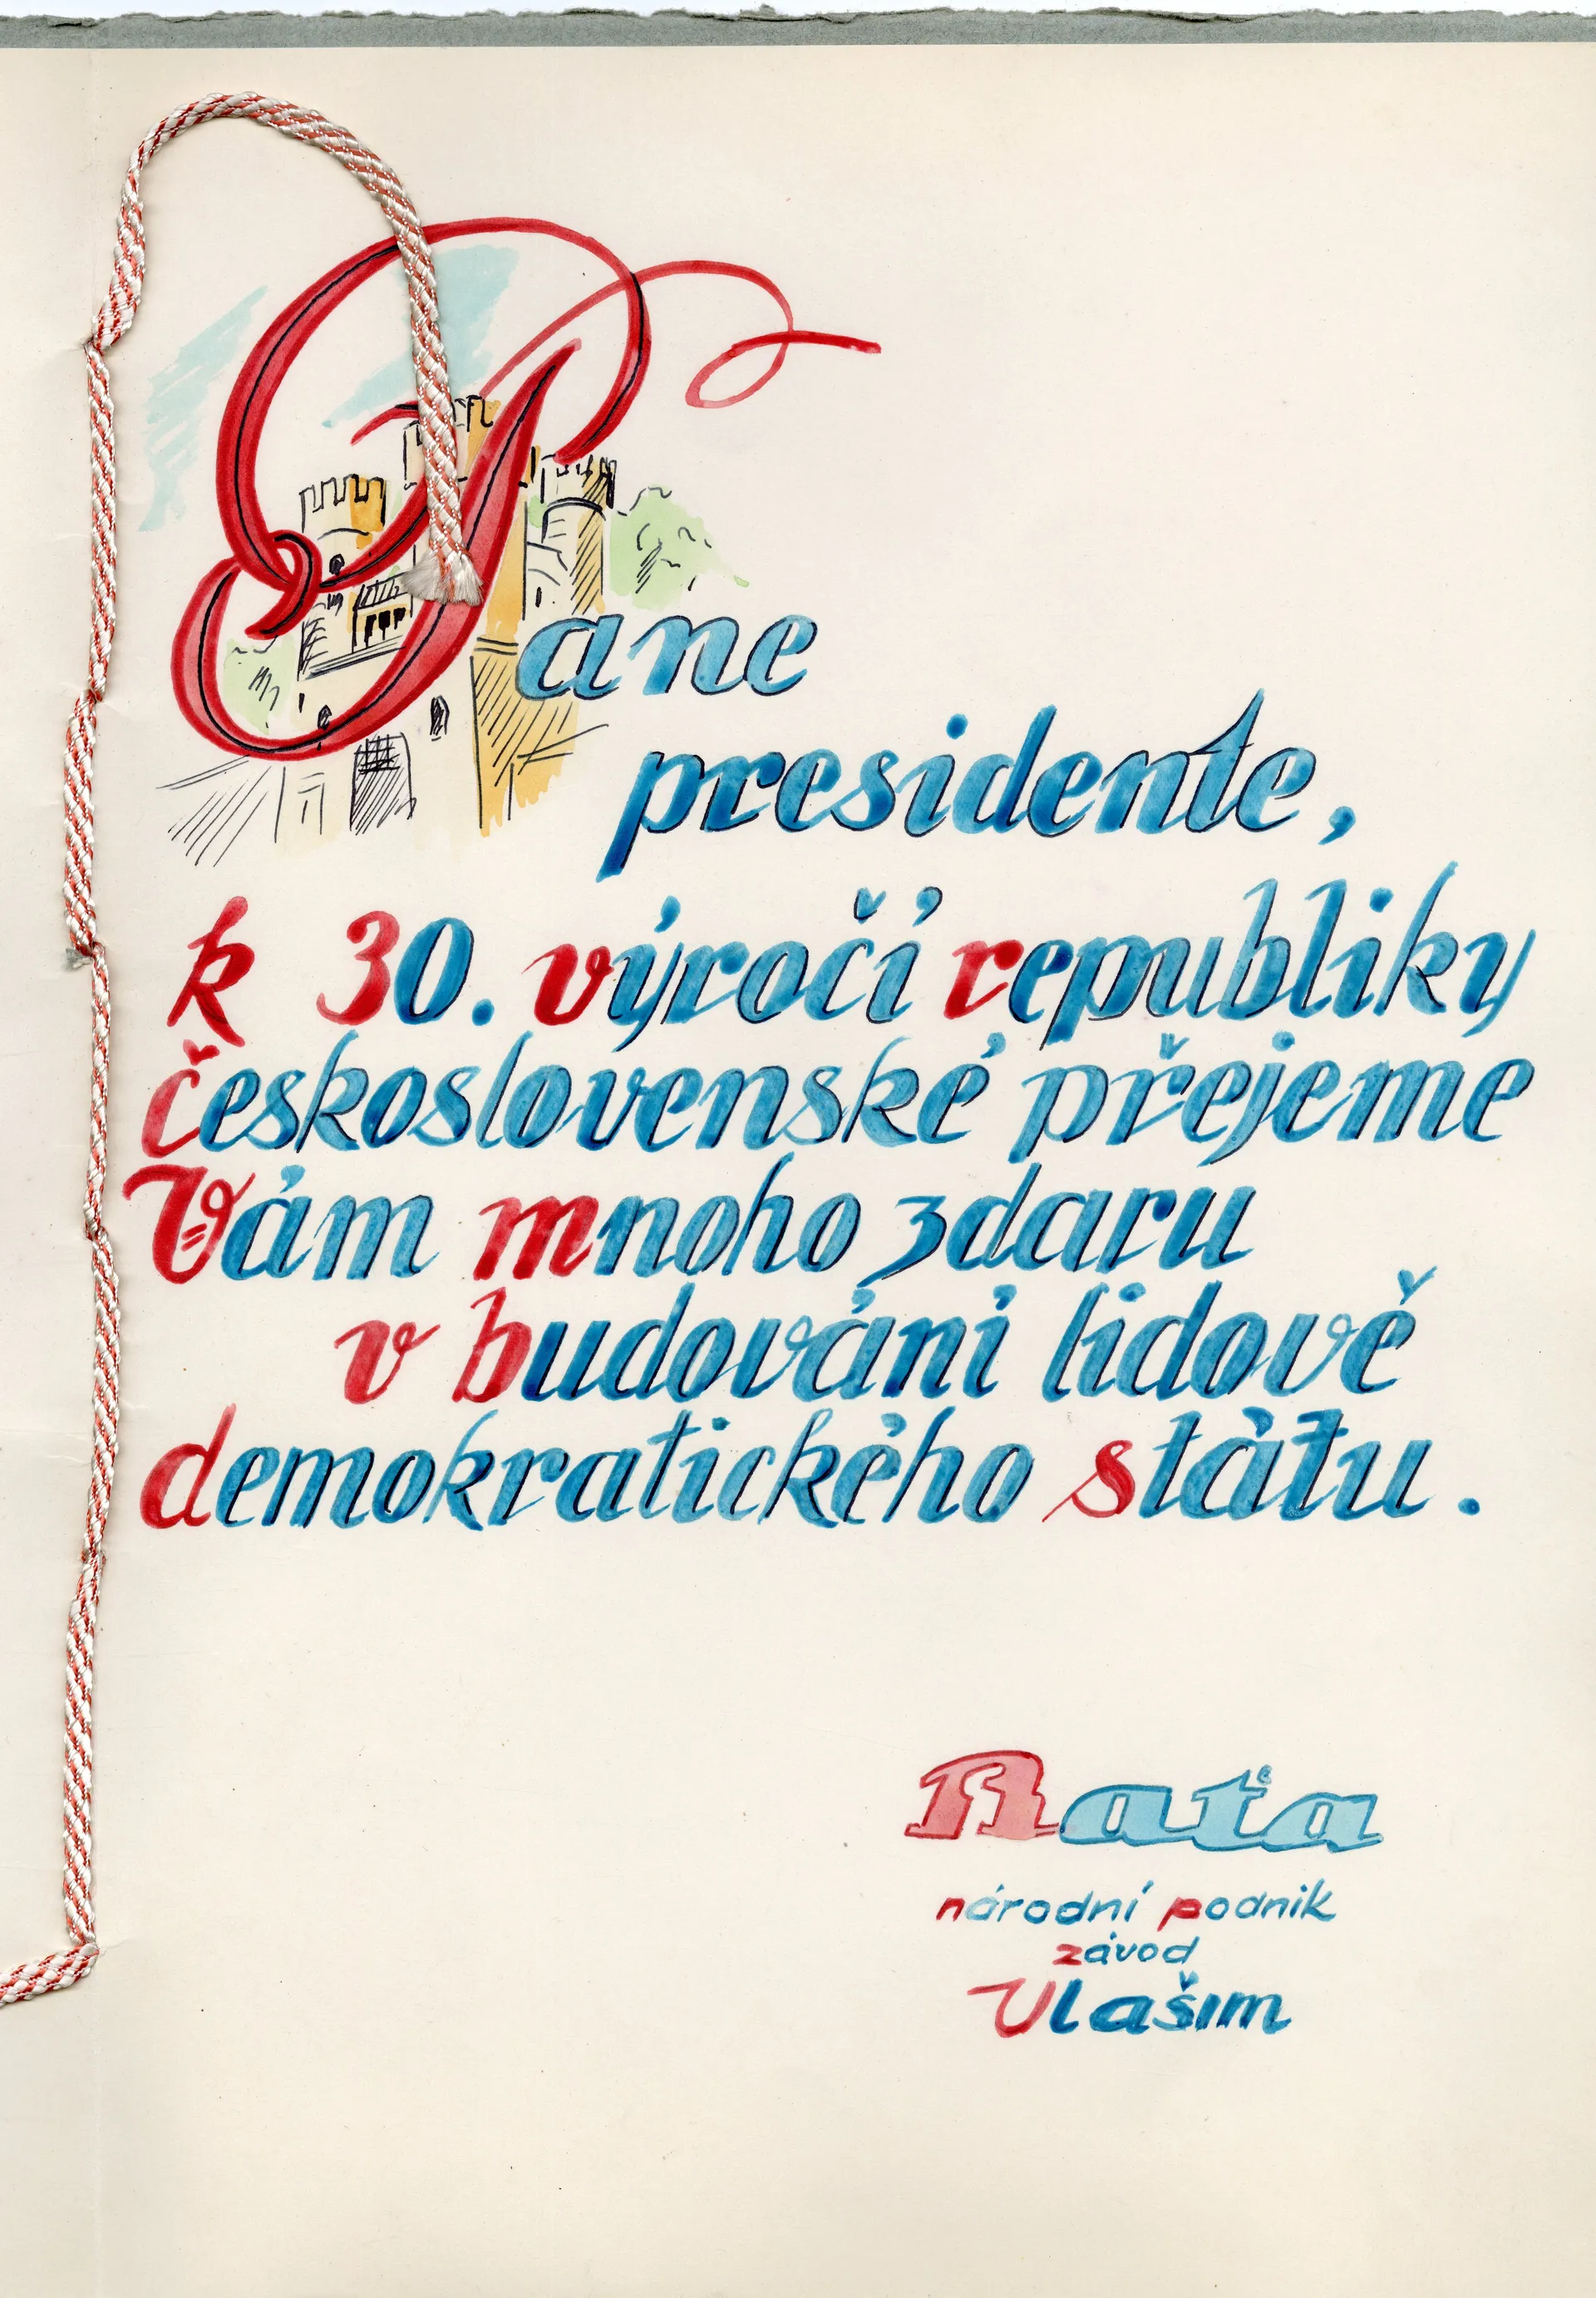 Pane
presidente,
k 30. výročí republiky
československé přejeme
Vám mnoho zdaru
v budování lidově
demokratického státu.
Baťa
národní podnik
závod
Vlašim